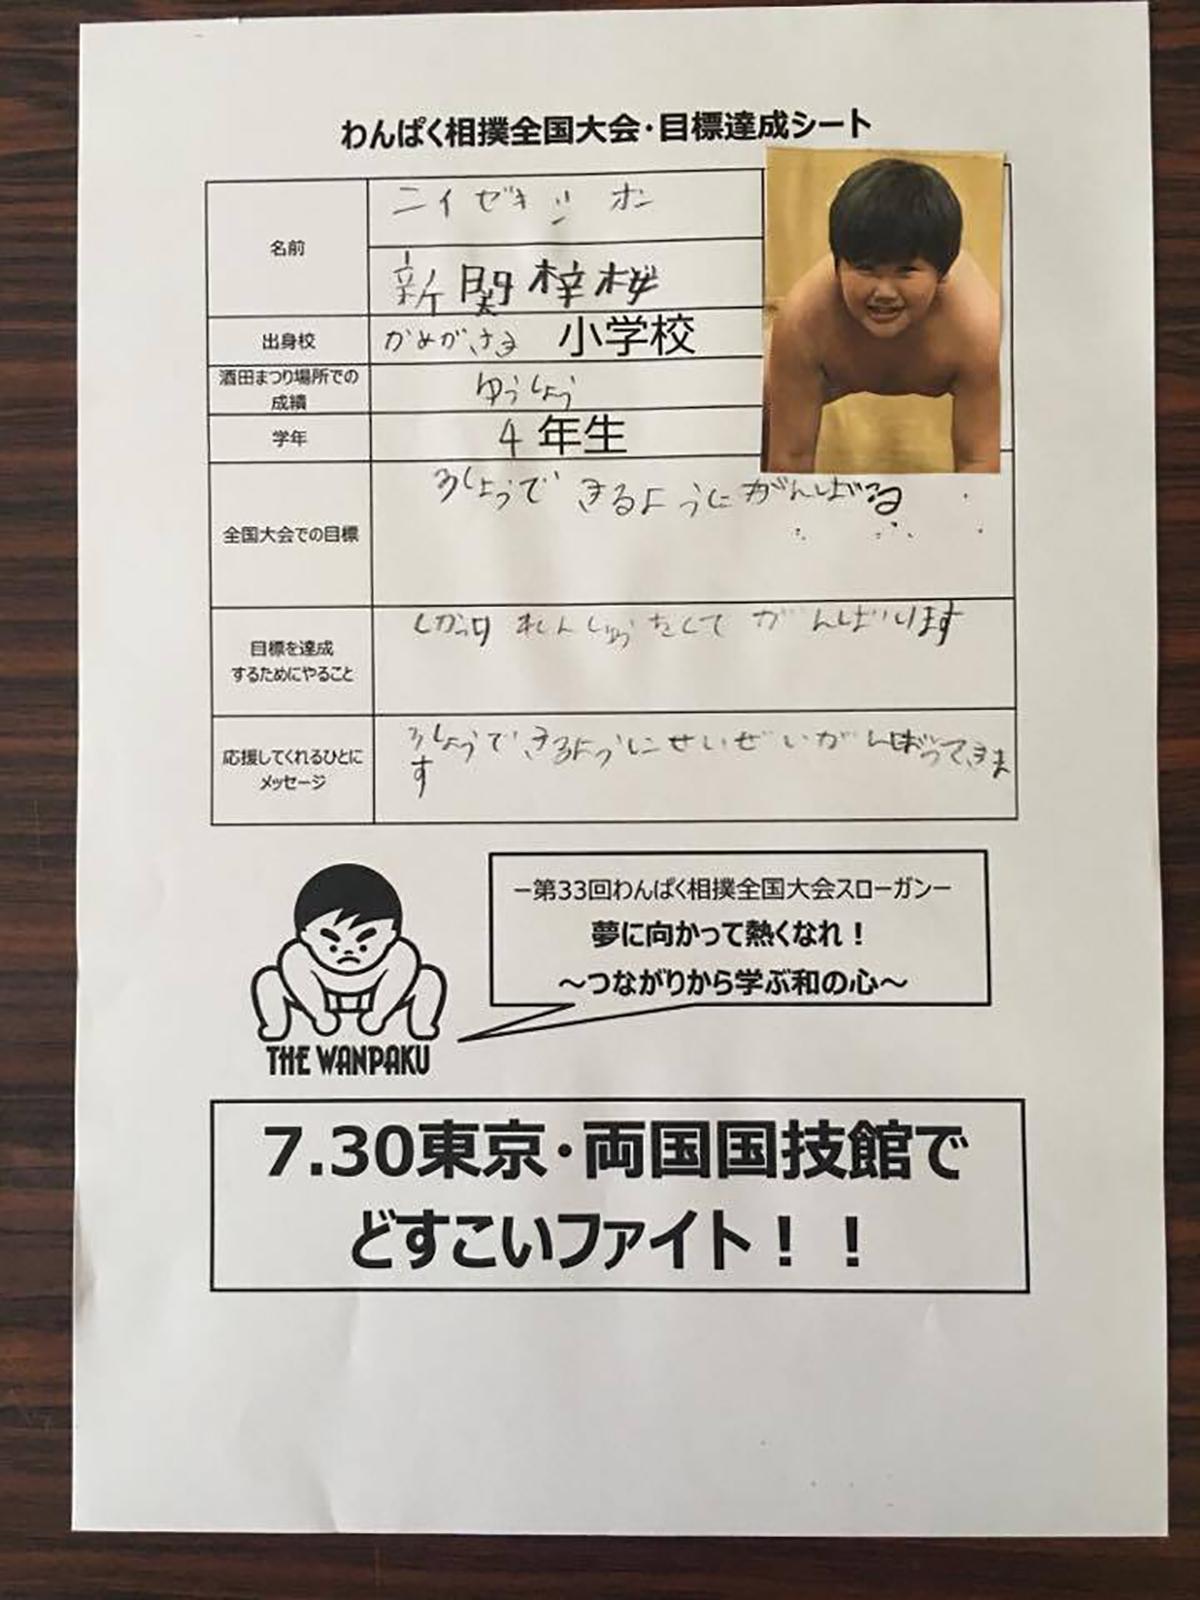 わんぱく相撲全国大会・目標達成シート
名前
ニイゼキ シ ホン
新関梓桜
出身校
かめがさき 小学校
酒田まつり場所での
成績
ゆうしょう
学年
4年生
全国大会での目標
うしょうできるようにがんばる
目標を達成
するためにやること
しかっり れんしゅうをして がんばります
応援してくれるひとに
メッセージ
うしょうできるようにせいぜいがんばってきま
す
－第33回わんぱく相撲全国大会スローガン－
夢に向かって熱くなれ！
～つながりから学ぶ和の心～
THE WANPAKU
7.30東京・両国国技館で
どすこいファイト！！